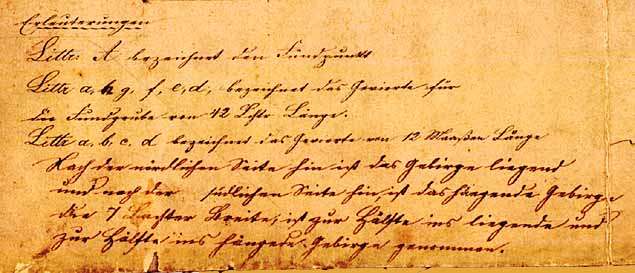 Erleuterungen
Littr: A bezeichnet den Fundpunkt
Littr a, h, g, f, e, d, bezeichnet das Gevierte für
die Fundgrube von 42 Lchtr Länge.
Littr a. b. c. d bezeichnet das Gevierte von 12 Maaßen Länge
Nach der nördlichen Seite hin ist das Gebirge liegend
und nach der südlichen Seite hin ist das hängende Gebirge
die 7 Lachter Breite, ist zur Hälfte ins liegende und
zur Hälfte ins hängende Gebirge genommen.